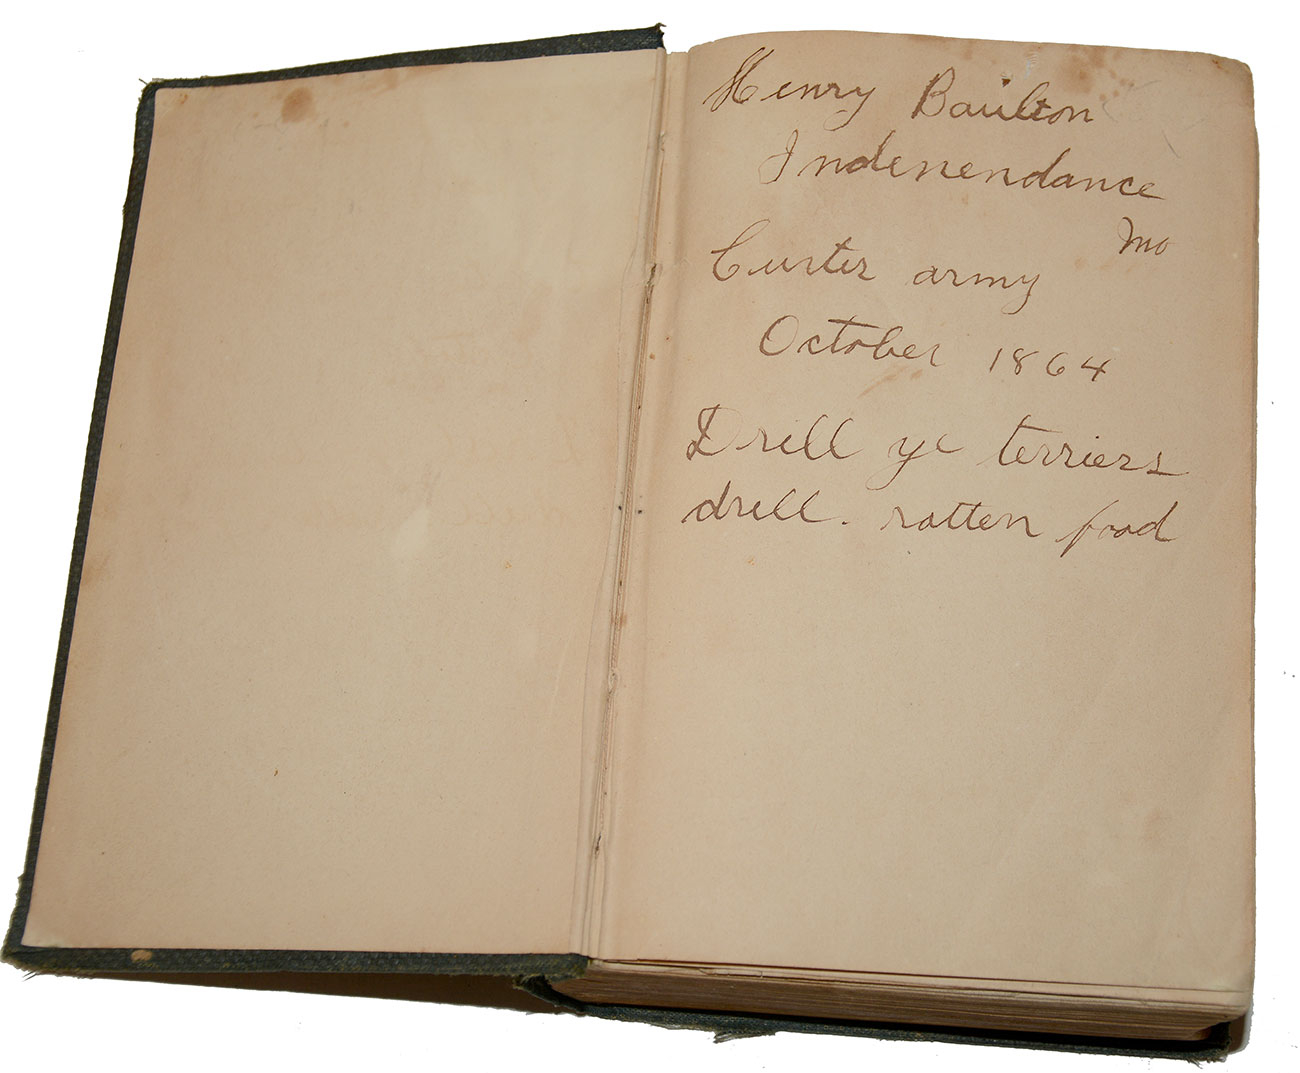 Henry Baulton
Indenendance
Mo
Curter army
October 1864
Drill ye terriers
drill. rotten food